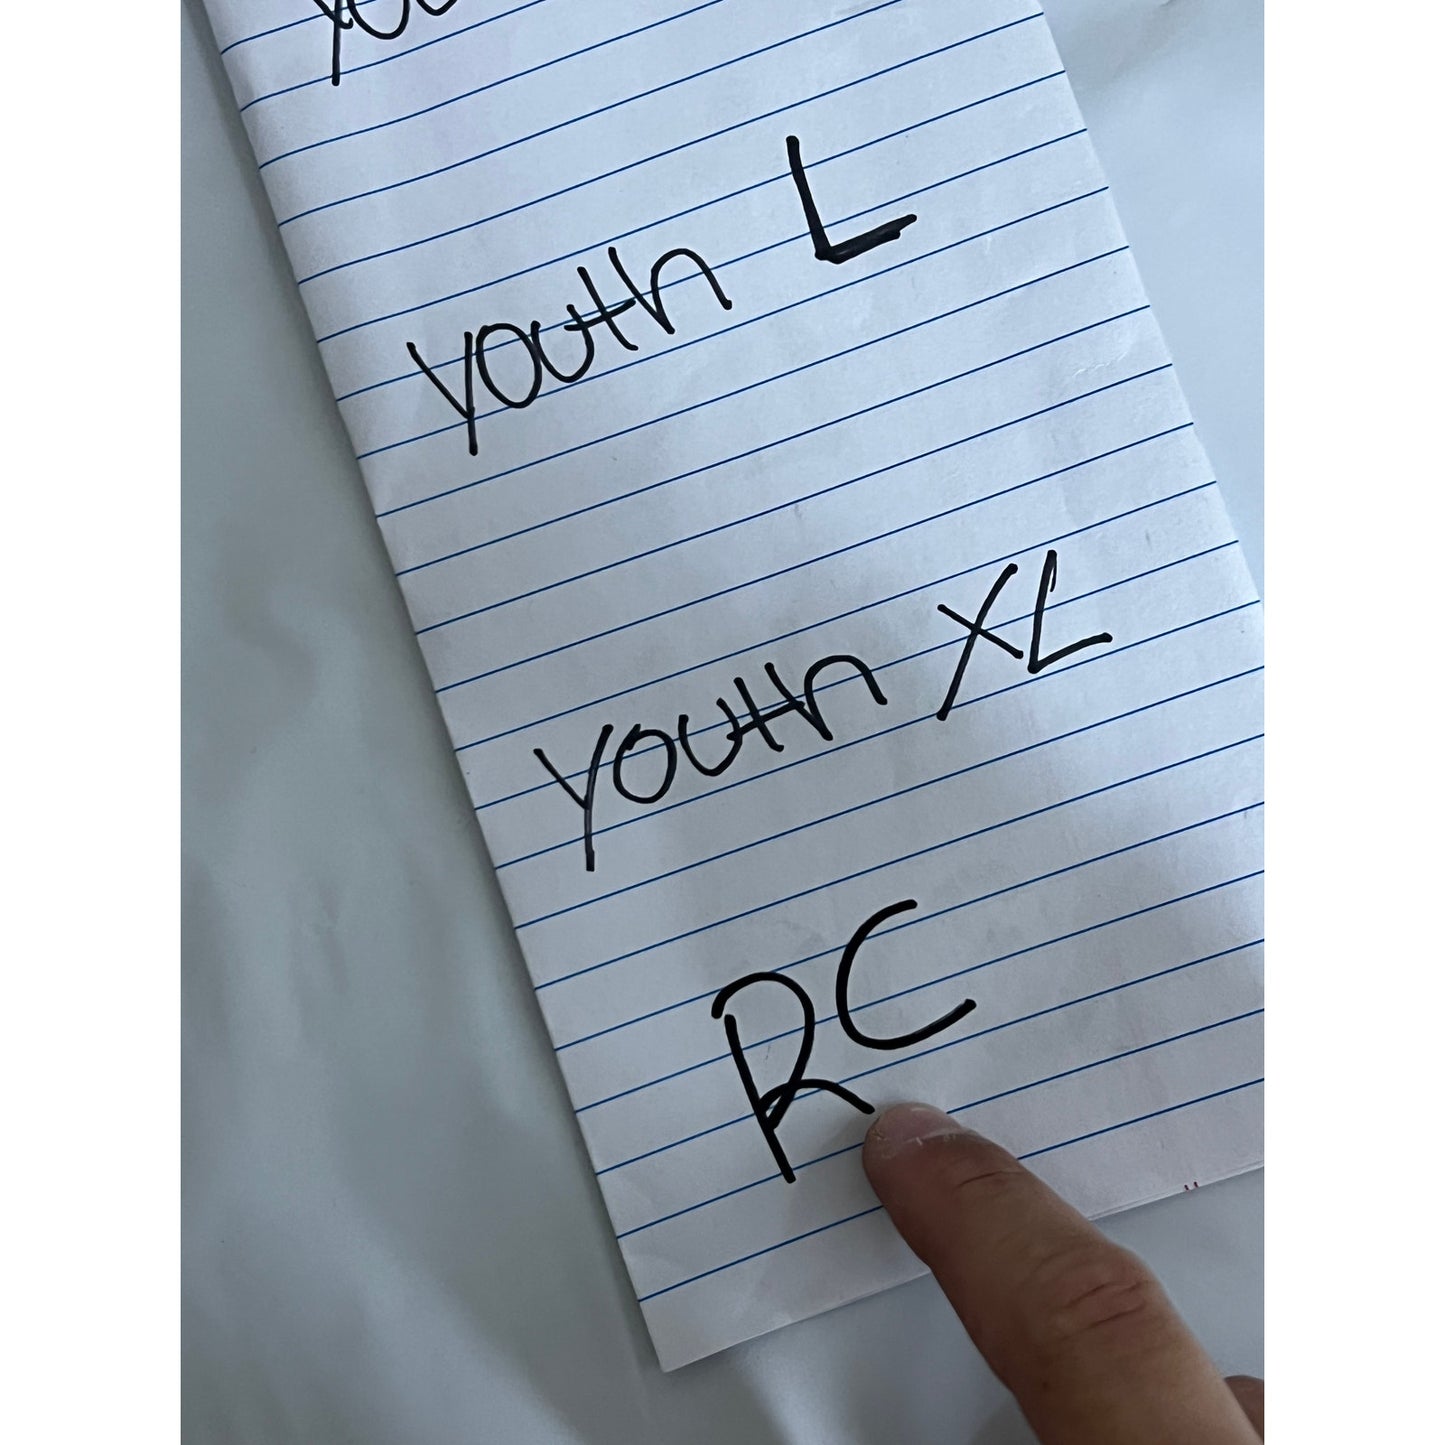 youth L
youth XL
RC